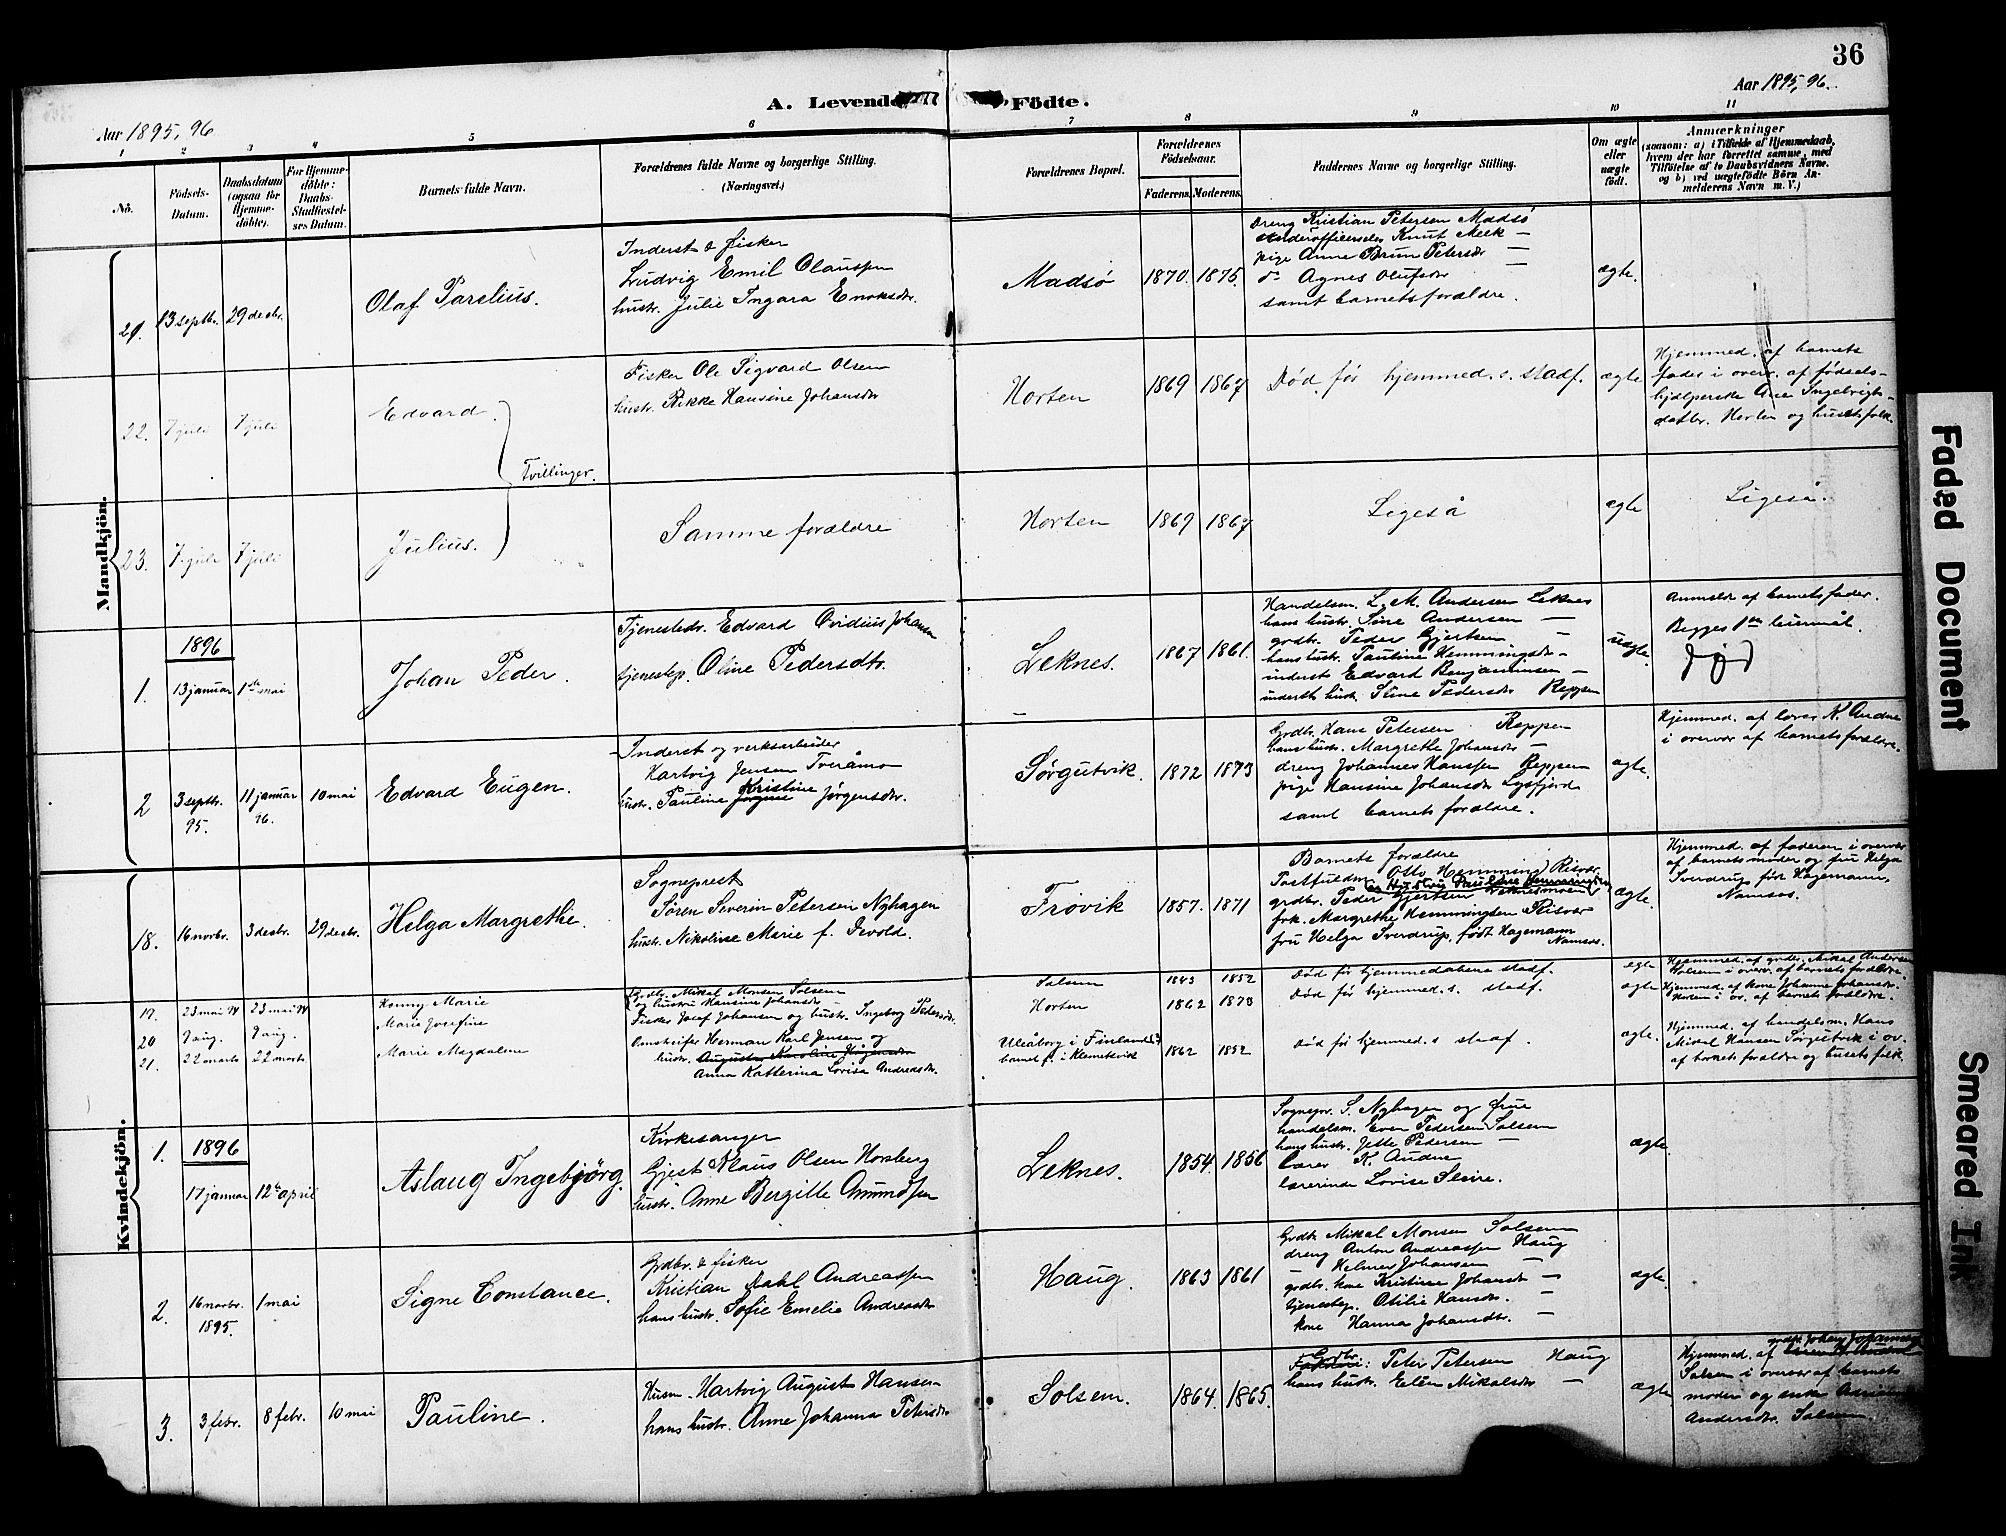 36
A. Levende Fødte.
Aar 1895, 96
Aar 1895, 96.
1 2 3 4 5 6 7 8 9 10 11
No.
Fødsels-
Datum.
Daabsdatum
(ogsaa for
Hjemme-
døbte).
For Hjemme-
døbte:
Daabs-
Stadfæstel-
ses Datum.
Barnets fulde Navn.
Forældrenes fulde Navne og borgerlige Stilling.
(Næringsvei.)
Forældrenes Bopæl.
Forældrenes
Fødselsaar.
Faderens. Moderens.
Faddernes Navne og borgerlige Stilling.
Om ægte
eller
uægte
født.
Anmærkninger
(saasom: a) i Tilfælde af Hjemmedaab,
hvem der har forrettet samme, med
Tilføielse af to Daabsvidners Navne,
og b) ved uægtefødte Børn An-
melderens Navn m. V.)
Mandkjön.
21. 13 septbr. 29 decbr.
Olaf Parelius.
Inderst & fisker
Ludvig Emil Olaussen
hustr. Julie Ingara Enoksdtr.
Madsø 1870. 1875.
Dreng Kristian Petersen Madsø
Knut Meek —
pige Anne Brun Petersdtr —
do Agnes Olufsdtr
samt barnets forældre.
ægte.
22. 7 juli 7 juli
Edvard.
Tvillinger.
Fisker Ole Sigvard Olsen
hustr. Rikke Hansine Johansdtr
Horten 1869 1867
Død før hjemmed. s. stadf.
ægte
Hjemmed. af barnets
fader i overv. af fødsels-
hjælperske Ane Ingebrigts-
datter. Horten og husets folk.
23. 7 juli 7 juli
Julius.
Samme forældre
Horten 1869 1867
Ligeså
ægte
Ligeså.
1896
1. 13 januar 1ste mai
Johan Peder.
Tjenestedr. Edvard Ovidius Johansen
tjenestep. Oline Pedersdtr.
Leknes. 1867 1861.
Handelsm. L. M. Andersen Leknes
hans hustr. Sine Andersen —
grdbr. Peder Gjertsen —
hans hustr. Pauline Hemmingsdtr —
inderst Edvard Benjaminsen —
inderst hustr. Stine Pedersdtr Reppen
uægte.
Anmeldt af barnets fader.
Begges 1ste leiermål.
død
2 3 septbr. 95. 11 januar 96. 10 mai
Edvard Eugen.
Inderst og verksarbeider
Hartvig Jensen Tveråmo
hustr. Pauline Kristine Jørgensdtr.
Sørgutvik. 1872 1873
Grdbr. Hans Petersen Reppen
hans hustr. Margrethe Johansdtr —
dreng Johannes Hanssen Reppen
pige Hansine Johansdtr Lysfjord
samt barnets forældre.
ægte.
Hjemmed. af lærer K. Audne
i overvær af barnets forældre.
Kvindekjön.
18. 16 novbr. 3 decbr. 29 decbr.
Helga Margrethe.
Sogneprest
Søren Severin Petersen Nyhagen
hustr. Nikoline Marie f. Devold.
Frøvik 1857. 1871
Barnets forældre
Otto Hemming Risvær
grdbr. Peder Gjertsen
frk. Margrethe Hemmingsen Risvær
fru Helga Sverdrup, født Hagemann
Namsos.
ægte.
Hjemmed. af faderen i overvær
af barnets moder og fru Helga
Sverdrup født Hagemann,
Namsos.
19. 23 mai 23 mai
Konny Marie
Grdbr. Mikal Monsen Solsem
og hustru Hansine Johansdtr
Solsem 1843 1852
Død før hjemmedåbens stadf.
ægte
Hjemmed. af grdbr. Mikal Andersen
Solsem i overv. af barnets forældre.
20 7 aug. 7 aug.
Marie Josefine
Fisker Josef Johansen og hustr. Ingeborg Pedersdtr.
Horten 1862 1873
Død før hjemmed. s. stadf.
ægte
Hjemmed. af kone Johanne Johansdtr.
Horten i ov. af barnets forældre.
21. 22 marts 22 marts
Marie Magdalene
Herman Karl Jensen og
hustr.
Anna Katterina Lovisa Andreasdtr.
Uleåborg i Finland
barnet f. i Klemetsvik
1862 1852
Død før hjemmed. s stadf.
ægte.
Hjemmed. af handelsm. Hans
Mikal Hansen Sørgutvik i ov.
af barnets forældre og husets folk.
1896
1. 17 januar 12te april
Aslaug Ingebjörg.
Kirkesanger
Gjest Klaus Olsen Horsberg
hustr. Anne Bergitte Amundsen
Leknes. 1854. 1856
Sognepr. S. Nyhagen og frue
handelsm. Even Pedersen Solsem
hans hustr. Jette Pedersen —
lærer K. Audne
lærerinde Lovise Sleire.
ægte.
2. 16 novbr. 1895. 1 mai
Signe Constance.
Grdbr. & fisker
Kristian Dahl Andreassen
hans hustr. Sofie Emelie Andreasdtr
Haug. 1863 1861
Grdbr Mikal Monsen Solsem
dreng Anton Andreassen Haug
— Helmer Johansen —
grdbr. kone Kristine Johansdtr —
tjenestep. Otilie Hansdtr. —
kone Hanna Johansdtr. —
ægte.
3. 3 febr. 8 febr. 10 mai
Pauline.
Husm. Hartvig August Hansen
hans hustr. Anne Johanna Petersdtr
Solsem. 1864. 1865.
Grdbr. Peter Petersen Haug
hans hustr. Ellen Mikalsdtr —
ægte
Hjemmed. af grdbr. Johan Johannesen
Solsem i overvær af barnets
moder og enke
Andersdtr. Solsem.
Faded Document
Smeared Ink